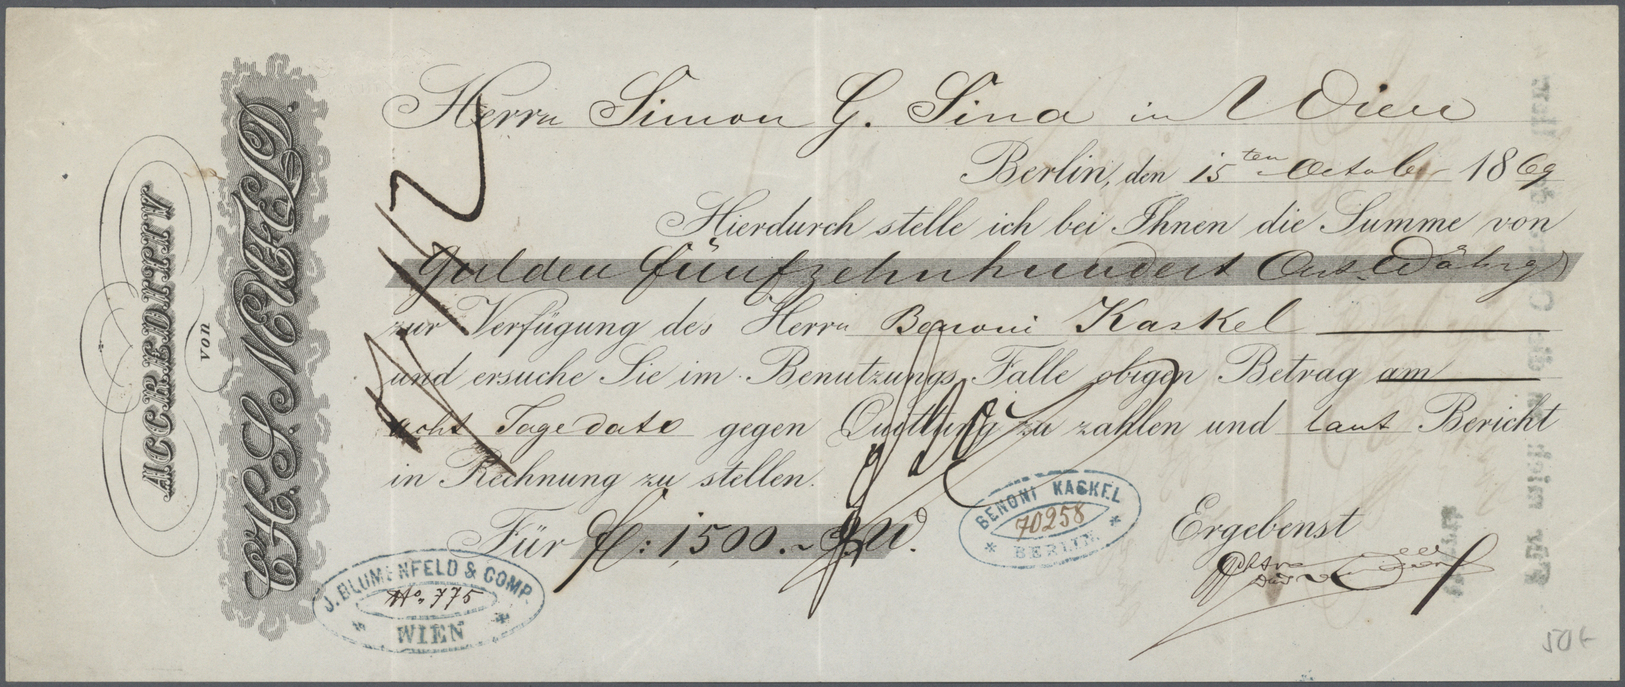 ACCREDITIV
von
H. S. NEUFELD.
Herrn Simon G. Sina in Wien
Berlin, den 15ten October 1869
Hierdurch stelle ich bei Ihnen die Summe von
Gulden fünfzehnhundert Oest. Währg
zur Verfügung des Herrn Benoni Kaskel
und ersuche Sie im Benutzungs Falle obigen Betrag am
acht Tage dato gegen Quittung zu zahlen und laut Bericht
in Rechnung zu stellen.
Für f: 1,500.~ ÖW.
Ergebenst
BENONI KASKEL
70258
BERLIN
J. BLUMENFELD & COMP.
No. 775
WIEN
50 €